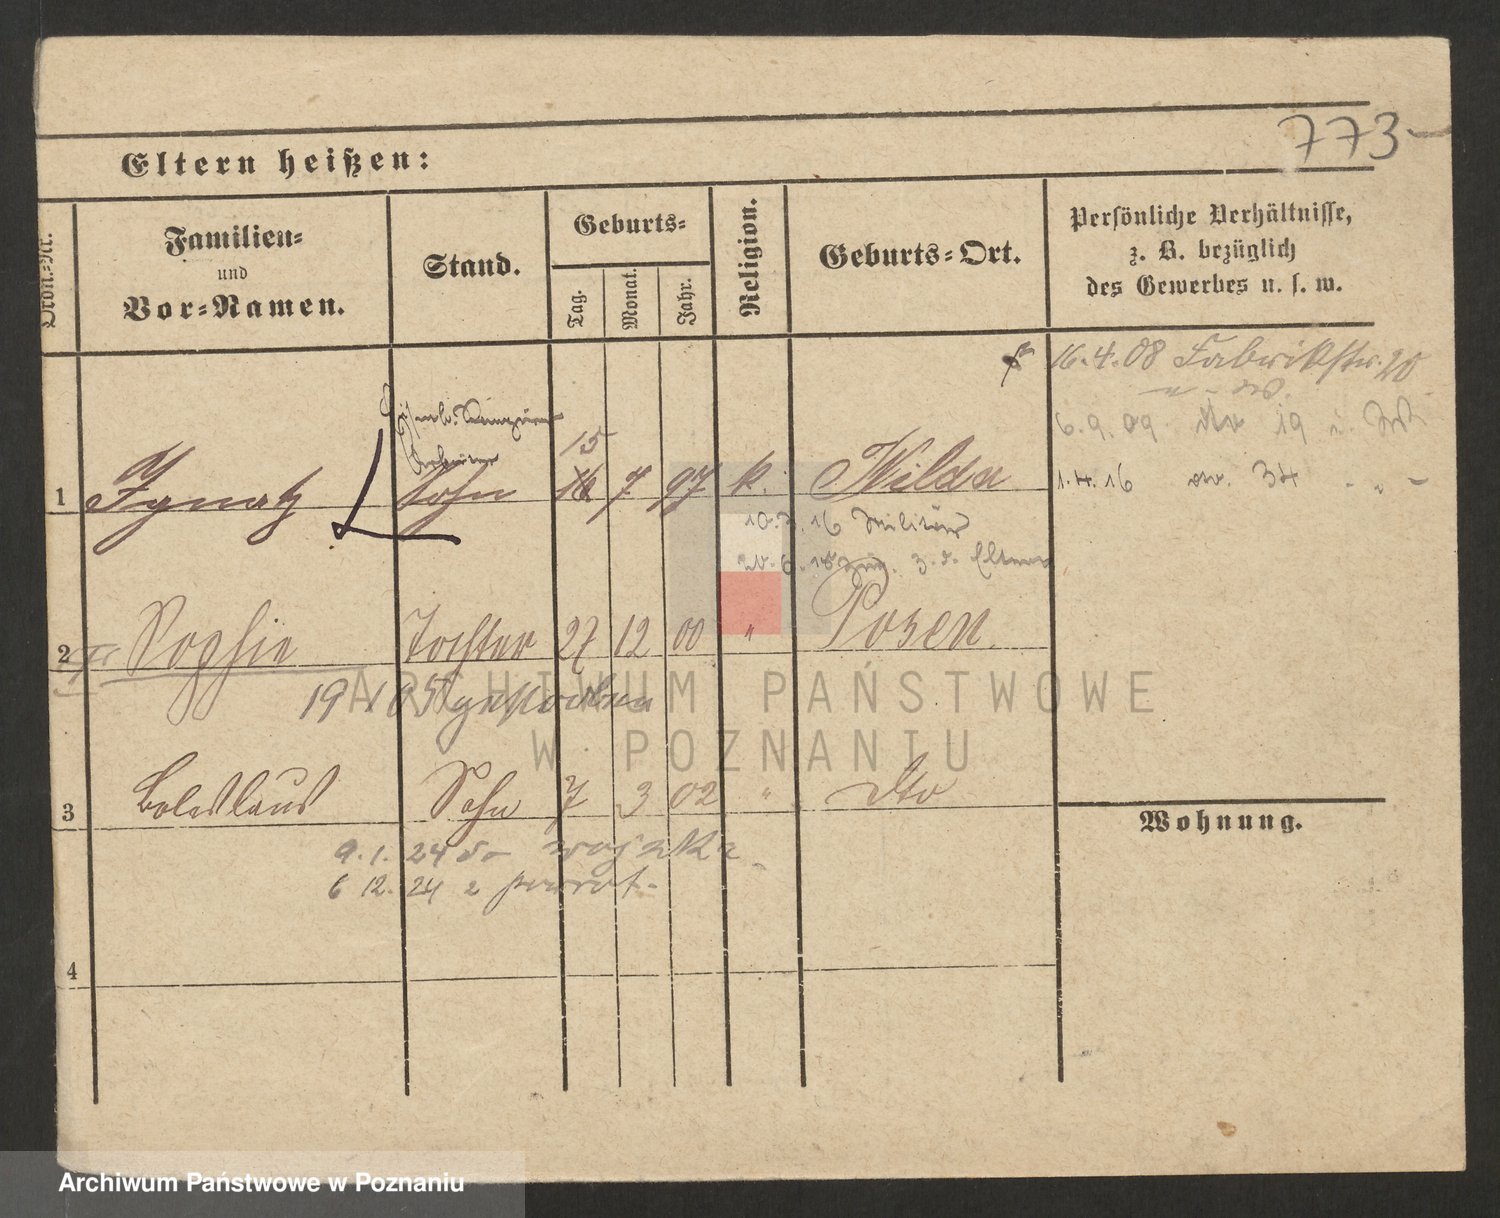 773-
Eltern heißen:
Ordn.-Nr.
Familien-
und
Vor-Namen.
Stand.
Geburts-
Tag.
Monat.
Jahr.
Religion.
Geburts-Ort.
Persönliche Verhältnisse,
z. B. bezüglich
des Gewerbes u. s. w.
16.4.08 Fabrikstr. 20
6.9.09 19
1.4.16 34 " -
Arbeiter
15
1 Ignatz Sohn 16 7 97 k. Wilda
16 Militär
z. d. Eltern
2 Sophie Tochter 27 12 00 " Posen.
19 05 gestorben
3 Boleslaus Sohn 7 3 02 " dto
Wohnung.
9.1.24 do wojska
6 12. 24 z powrot.
4
ARCHIWUM PAŃSTWOWE
W POZNANIU
Archiwum Państwowe w Poznaniu